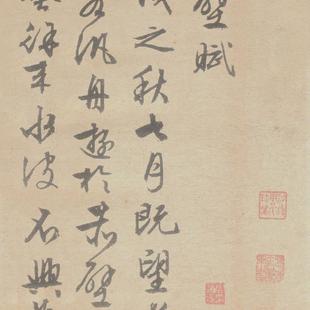 壁賦
戌之秋七月既望
客汎舟遊於赤壁
風徐来水波不興